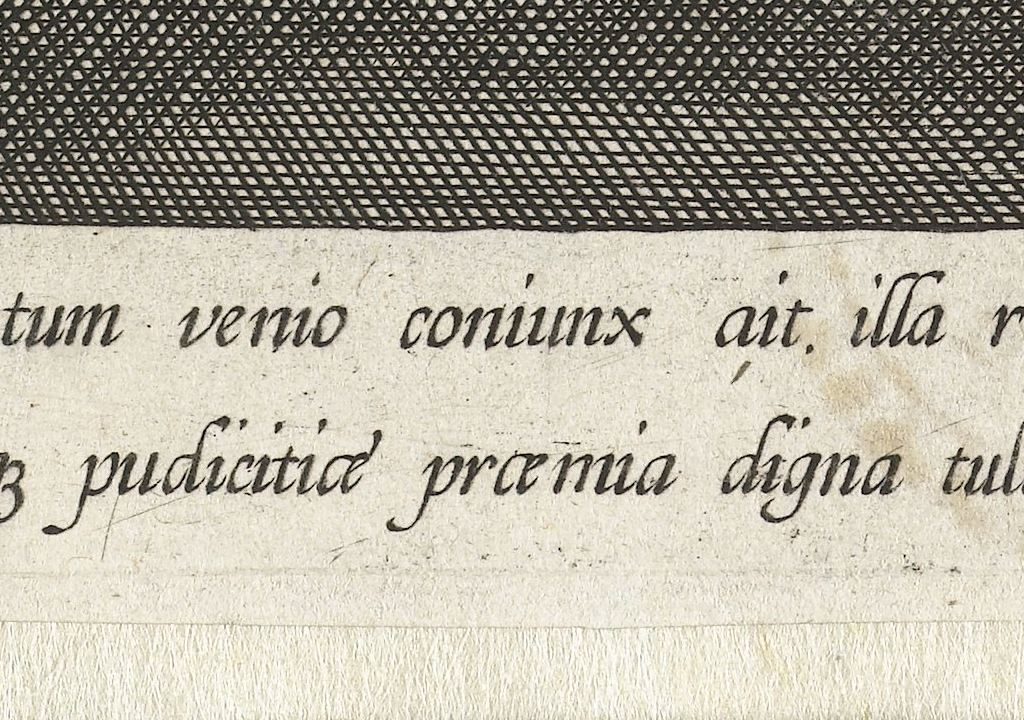 tum venio coniunx ait. illa r
pudicitiæ præmia digna tul